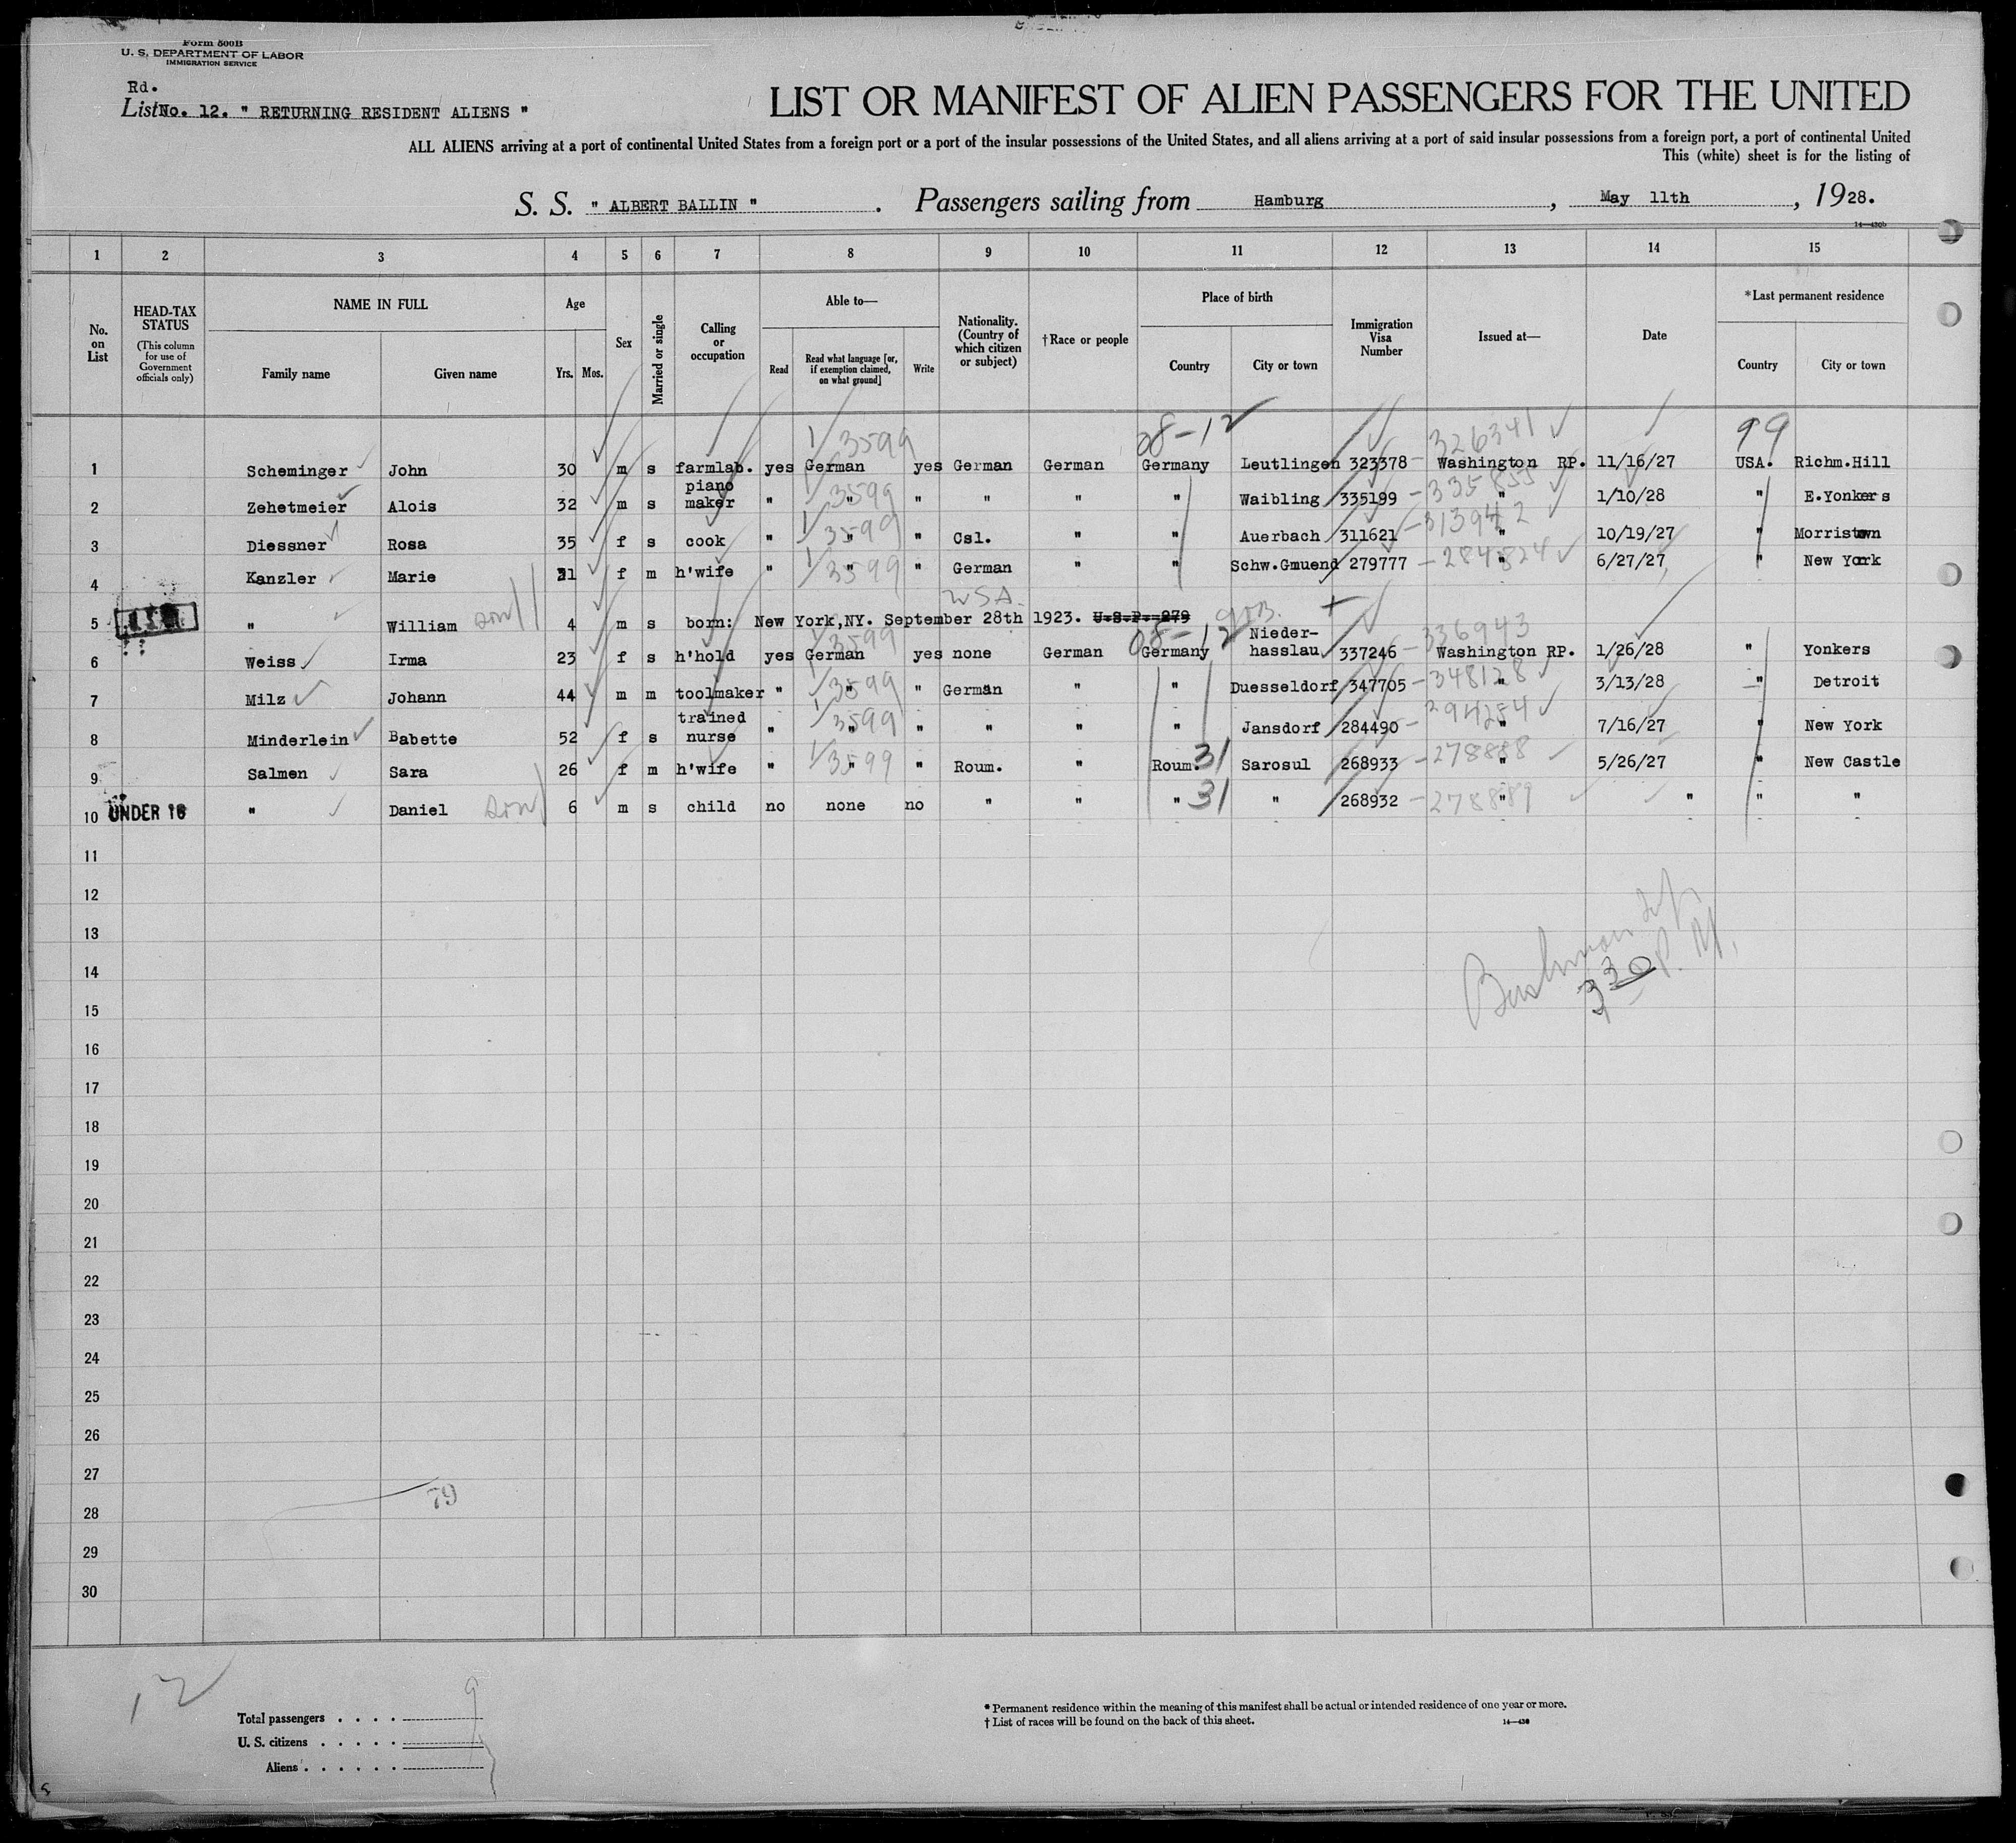 Form 500B
U. S. DEPARTMENT OF LABOR
IMMIGRATION SERVICE
Rd.
List No. 12. " RETURNING RESIDENT ALIENS "
LIST OR MANIFEST OF ALIEN PASSENGERS FOR THE UNITED
ALL ALIENS arriving at a port of continental United States from a foreign port or a port of the insular possessions of the United States, and all aliens arriving at a port of said insular possessions from a foreign port, a port of continental United
This (white) sheet is for the listing of
S. S. " ALBERT BALLIN ". Passengers sailing from Hamburg, May 11th, 1928.
14—430b
1 2 3 4 5 6 7 8 9 10 11 12 13 14 15
No. on List
HEAD-TAX STATUS (This column for use of Government officials only)
NAME IN FULL
Family name Given name
Age
Yrs. Mos.
Sex
Married or single
Calling or occupation
Able to—
Read Read what language [or, if exemption claimed, on what ground] Write
Nationality. (Country of which citizen or subject)
†Race or people
Place of birth
Country City or town
Immigration Visa Number
Issued at—
Date
*Last permanent residence
Country City or town
1/3599 08-12 326341 99
1 Scheminger John 30 m s farmlab. yes German yes German German Germany Leutlingen 323378 Washington RP. 11/16/27 USA. Richm.Hill
1/3599 -335855
2 Zehetmeier Alois 32 m s piano maker " " " " " " Waibling 335199 " 1/10/28 " E.Yonkers
1/3599 -313942
3 Diessner Rosa 35 f s cook " " " Csl. " " Auerbach 311621 " 10/19/27 " Morristown
1/3599 -284824
4 Kanzler Marie 31 f m h'wife " " " German " " Schw.Gmuend 279777 " 6/27/27 " New York
USA.
5 " William son 4 m s born: New York,NY. September 28th 1923. U.S.P. 279
1/3599 08-12 -336943
6 Weiss Irma 23 f s h'hold yes German yes none German Germany Nieder-hasslau 337246 Washington RP. 1/26/28 " Yonkers
1/3599 -348128
7 Milz Johann 44 m m toolmaker " " " German " " Duesseldorf 347705 " 3/13/28 " Detroit
1/3599 -294254
8 Minderlein Babette 52 f s trained nurse " " " " " " Jansdorf 284490 " 7/16/27 " New York
1/3599 31 -278888
9 Salmen Sara 26 f m h'wife " " " Roum. " Roum. Sarosul 268933 " 5/26/27 " New Castle
31 -278889
10 UNDER 16 " Daniel son 6 m s child no none no " " " " 268932 " " " "
11
12
13
14
330 P. M.
15
16
17
18
19
20
21
22
23
24
25
26
27
79
28
29
30
12
Total passengers . . . . 9
U. S. citizens . . . . .
Aliens . . . . . .
* Permanent residence within the meaning of this manifest shall be actual or intended residence of one year or more.
† List of races will be found on the back of this sheet.
14—430